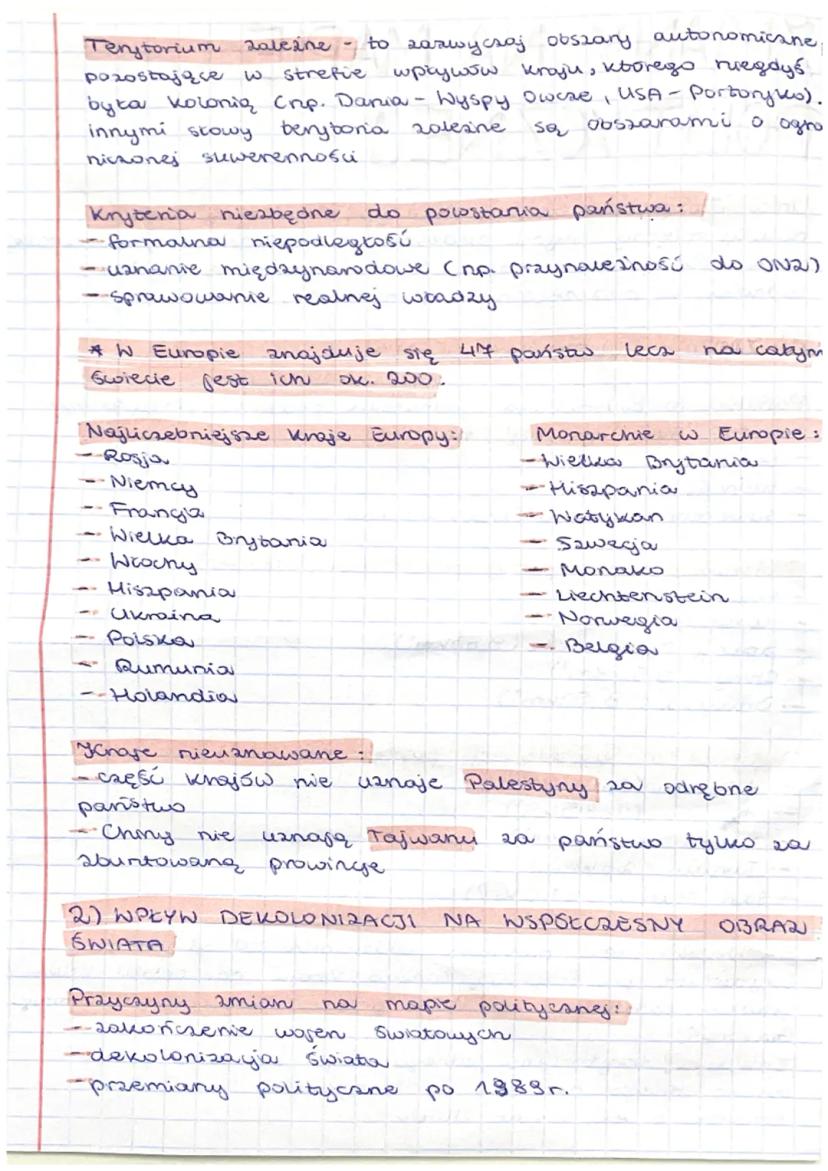 Terytorium zależne - to zazwyczaj obszary autonomiczne,
pozostające w strefie wpływów kraju, którego niegdyś
była kolonią (np. Dania - Wyspy Owcze, USA - Portoryko).
innymi słowy terytoria zależne są obszarami o ogra
niczonej suwerenności
Kryteria niezbędne do powstania państwa:
- formalna niepodległość
- uznanie międzynarodowe (np. przynależność do ONZ)
- sprawowanie realnej władzy
* W Europie znajduje się 47 państw lecz na całym
świecie jest ich ok. 200.
Najliczebniejsze kraje Europy:
- Rosja
- Niemcy
- Francja
- Wielka Brytania
- Włochy
- Hiszpania
- Ukraina
- Polska
- Rumunia
- Holandia
Monarchie w Europie:
- Wielka Brytania
- Hiszpania
- Watykan
- Szwecja
- Monako
- Liechtenstein
- Norwegia
- Belgia
Kraje nieuznawane:
- część krajów nie uznaje Palestyny za odrębne
państwo
- Chiny nie uznają Tajwanu za państwo tylko za
zbuntowaną prowincję
2) WPŁYW DEKOLONIZACJI NA WSPÓŁCZESNY OBRAZ
ŚWIATA
Przyczyny zmian na mapie politycznej:
- zakończenie wojen światowych
- dekolonizacja świata
- przemiany polityczne po 1989r.